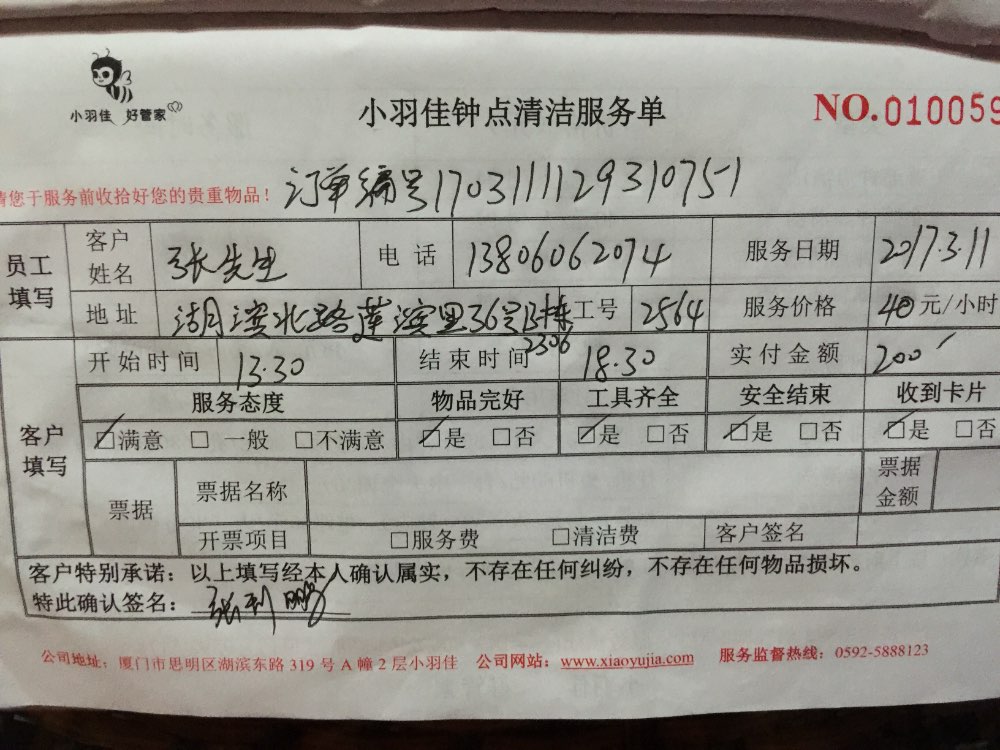 小羽佳 好管家
小羽佳钟点清洁服务单
NO.010059
请您于服务前收拾好您的贵重物品！
订单编号1703111129310751
员工填写 客户姓名 张先生 电话 13806062074 服务日期 2017.3.11
地址 湖滨北路莲滨里36号B栋2306 工号 2564 服务价格 40元/小时
客户填写 开始时间 13.30 结束时间 18.30 实付金额 200
服务态度 物品完好 工具齐全 安全结束 收到卡片
☑满意 □一般 □不满意 ☑是 □否 ☑是 □否 ☑是 □否 ☑是 □否
票据 票据名称 票据金额
开票项目 □服务费 □清洁费 客户签名
客户特别承诺：以上填写经本人确认属实，不存在任何纠纷，不存在任何物品损坏。
特此确认签名：张利鹏
公司地址：厦门市思明区湖滨东路 319 号 A 幢 2 层小羽佳 公司网站：www.xiaoyujia.com 服务监督热线：0592-5888123